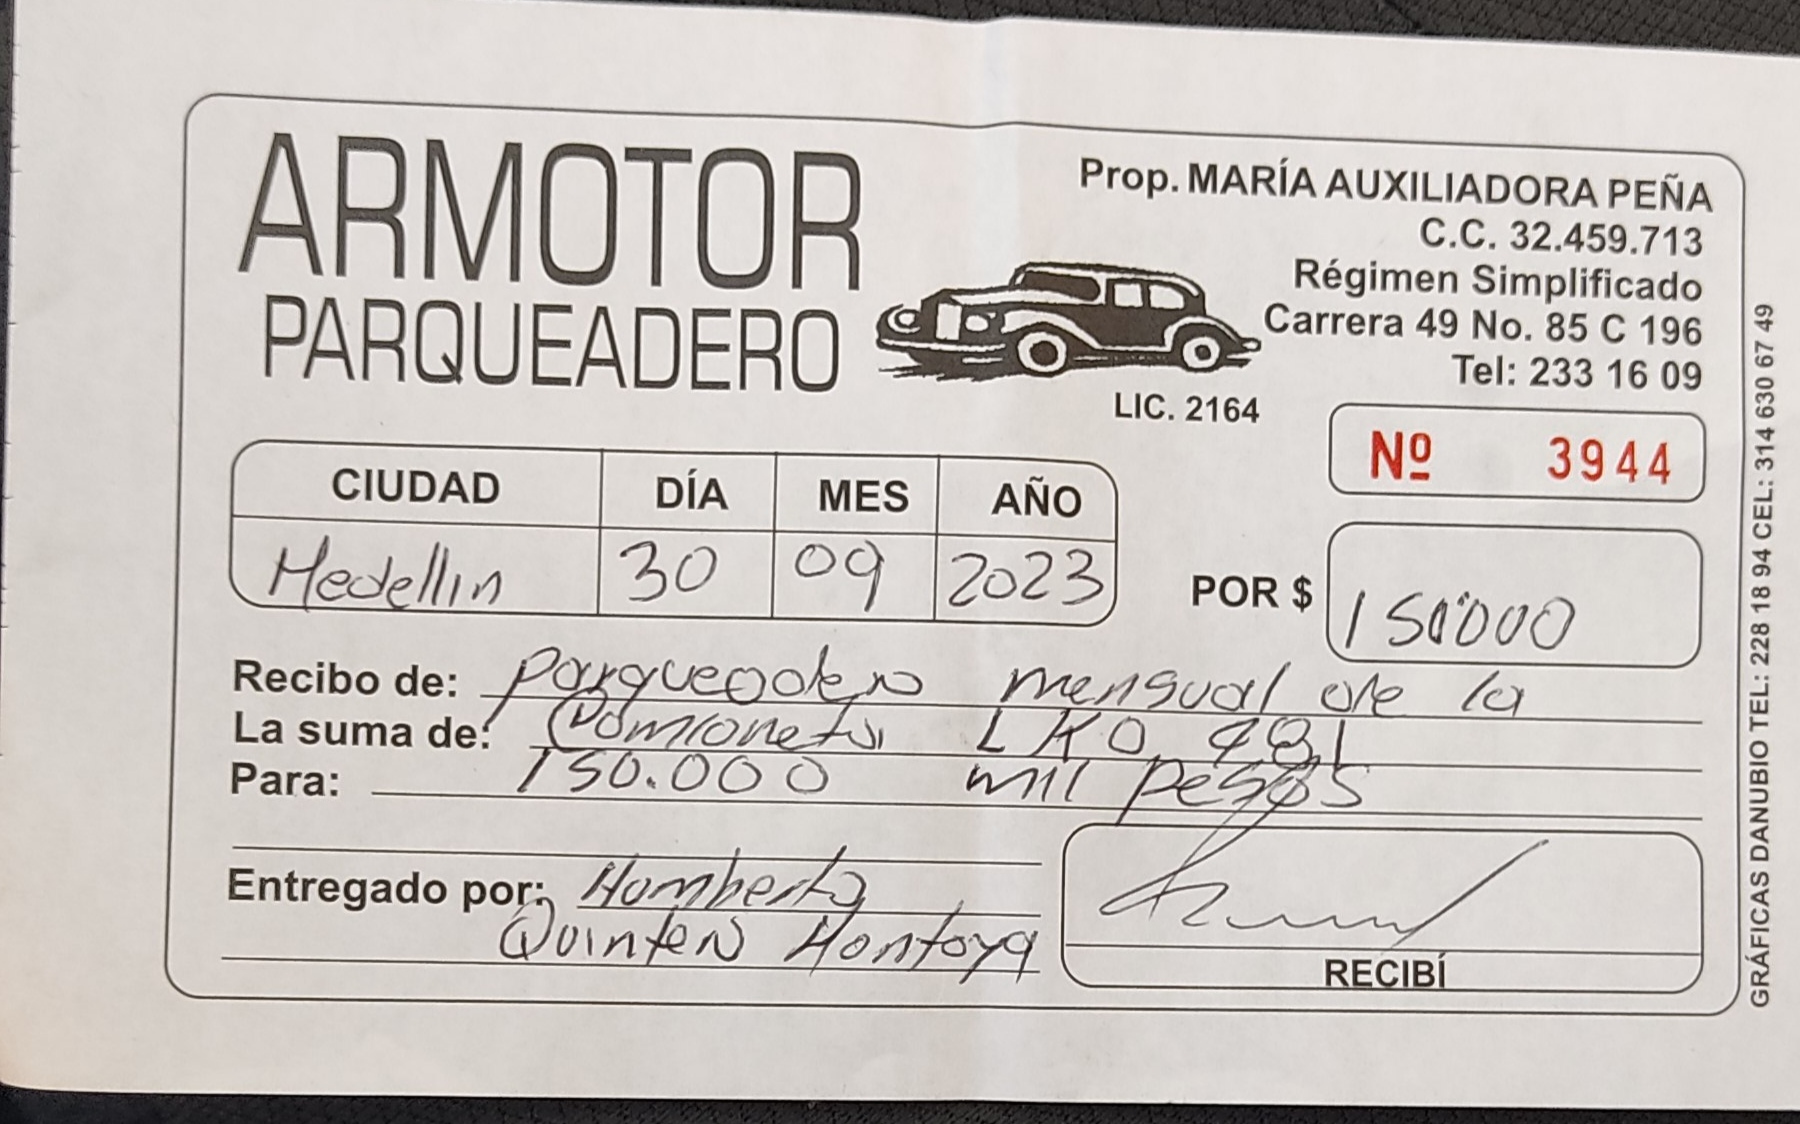 ARMOTOR
PARQUEADERO
Prop. MARÍA AUXILIADORA PEÑA
C.C. 32.459.713
Régimen Simplificado
Carrera 49 No. 85 C 196
Tel: 233 16 09
LIC. 2164
Nº 3944
CIUDAD DÍA MES AÑO
Medellin 30 09 2023
POR $ 150'000
Recibo de: parqueadero mensual de la
La suma de: Camioneta LKO 481
Para: 150.000 mil pesos
Entregado por: Humberto
Quinten Montoya
RECIBÍ
GRÁFICAS DANUBIO TEL: 228 18 94 CEL: 314 630 67 49